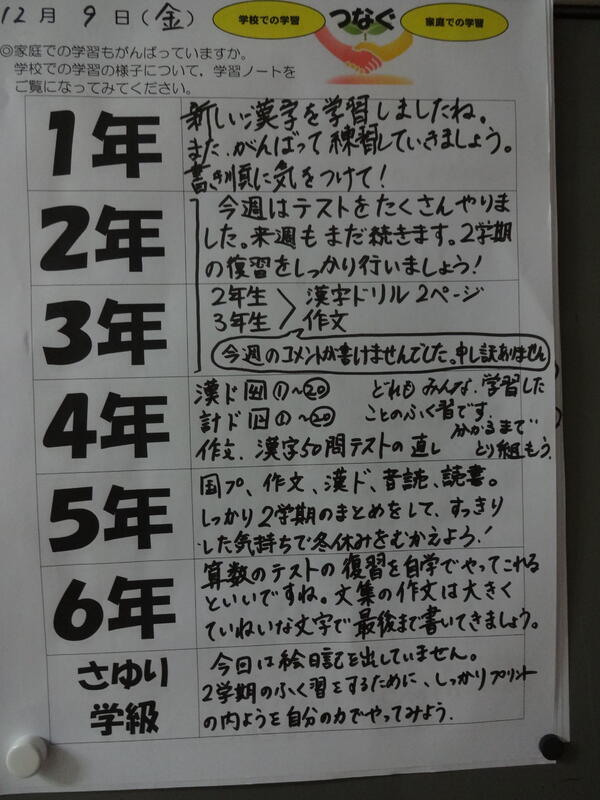 12月 9日(金)
学校での学習
つなぐ
家庭での学習
◎家庭での学習もがんばっていますか。
学校での学習の様子について,学習ノートを
ご覧になってみてください。
1年
新しい漢字を学習しましたね。
また、がんばって練習していきましょう。
書き順に気をつけて!
2年
今週はテストをたくさんやりま
した。来週もまだ続きます。2学期
の復習をしっかり行いましょう!
3年
2年生 > 漢字ドリル2ページ
3年生 作文
今週のコメントが書けませんでした。申し訳ありません
4年
漢ド 44 ①~⑳ どれも みんな、学習した
計ド ①~⑳ ことのふく習です。
作文、漢字50問テストの直し わかるまで
とり組もう。
5年
国プ、作文、漢ド、音読、読書。
しっかり2学期のまとめをして、すっきり
した気持ちで冬休みをむかえよう!
6年
算数のテストの復習を自学でやってこれる
といいですね。文集の作文は大きく
ていねいな文字で最後まで書いてきましょう。
さゆり
学級
今日は絵日記を出していません。
2学期のふく習をするために、しっかりプリント
の内ようを自分の力でやってみよう。